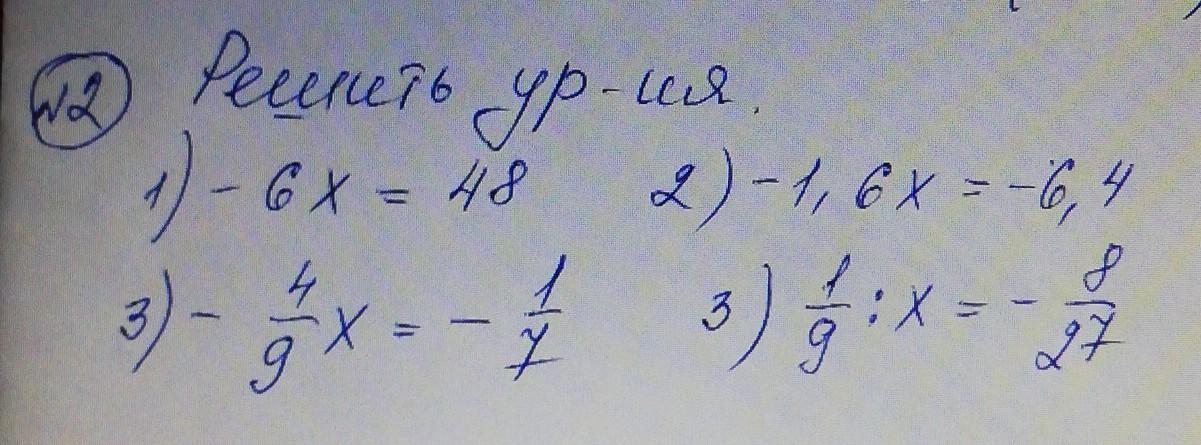 №2 Решить ур-ия.
1) - 6x = 48 2) -1,6x = -6,4
3) - 4/9 x = - 1/7 3) 1/9 : x = - 8/27